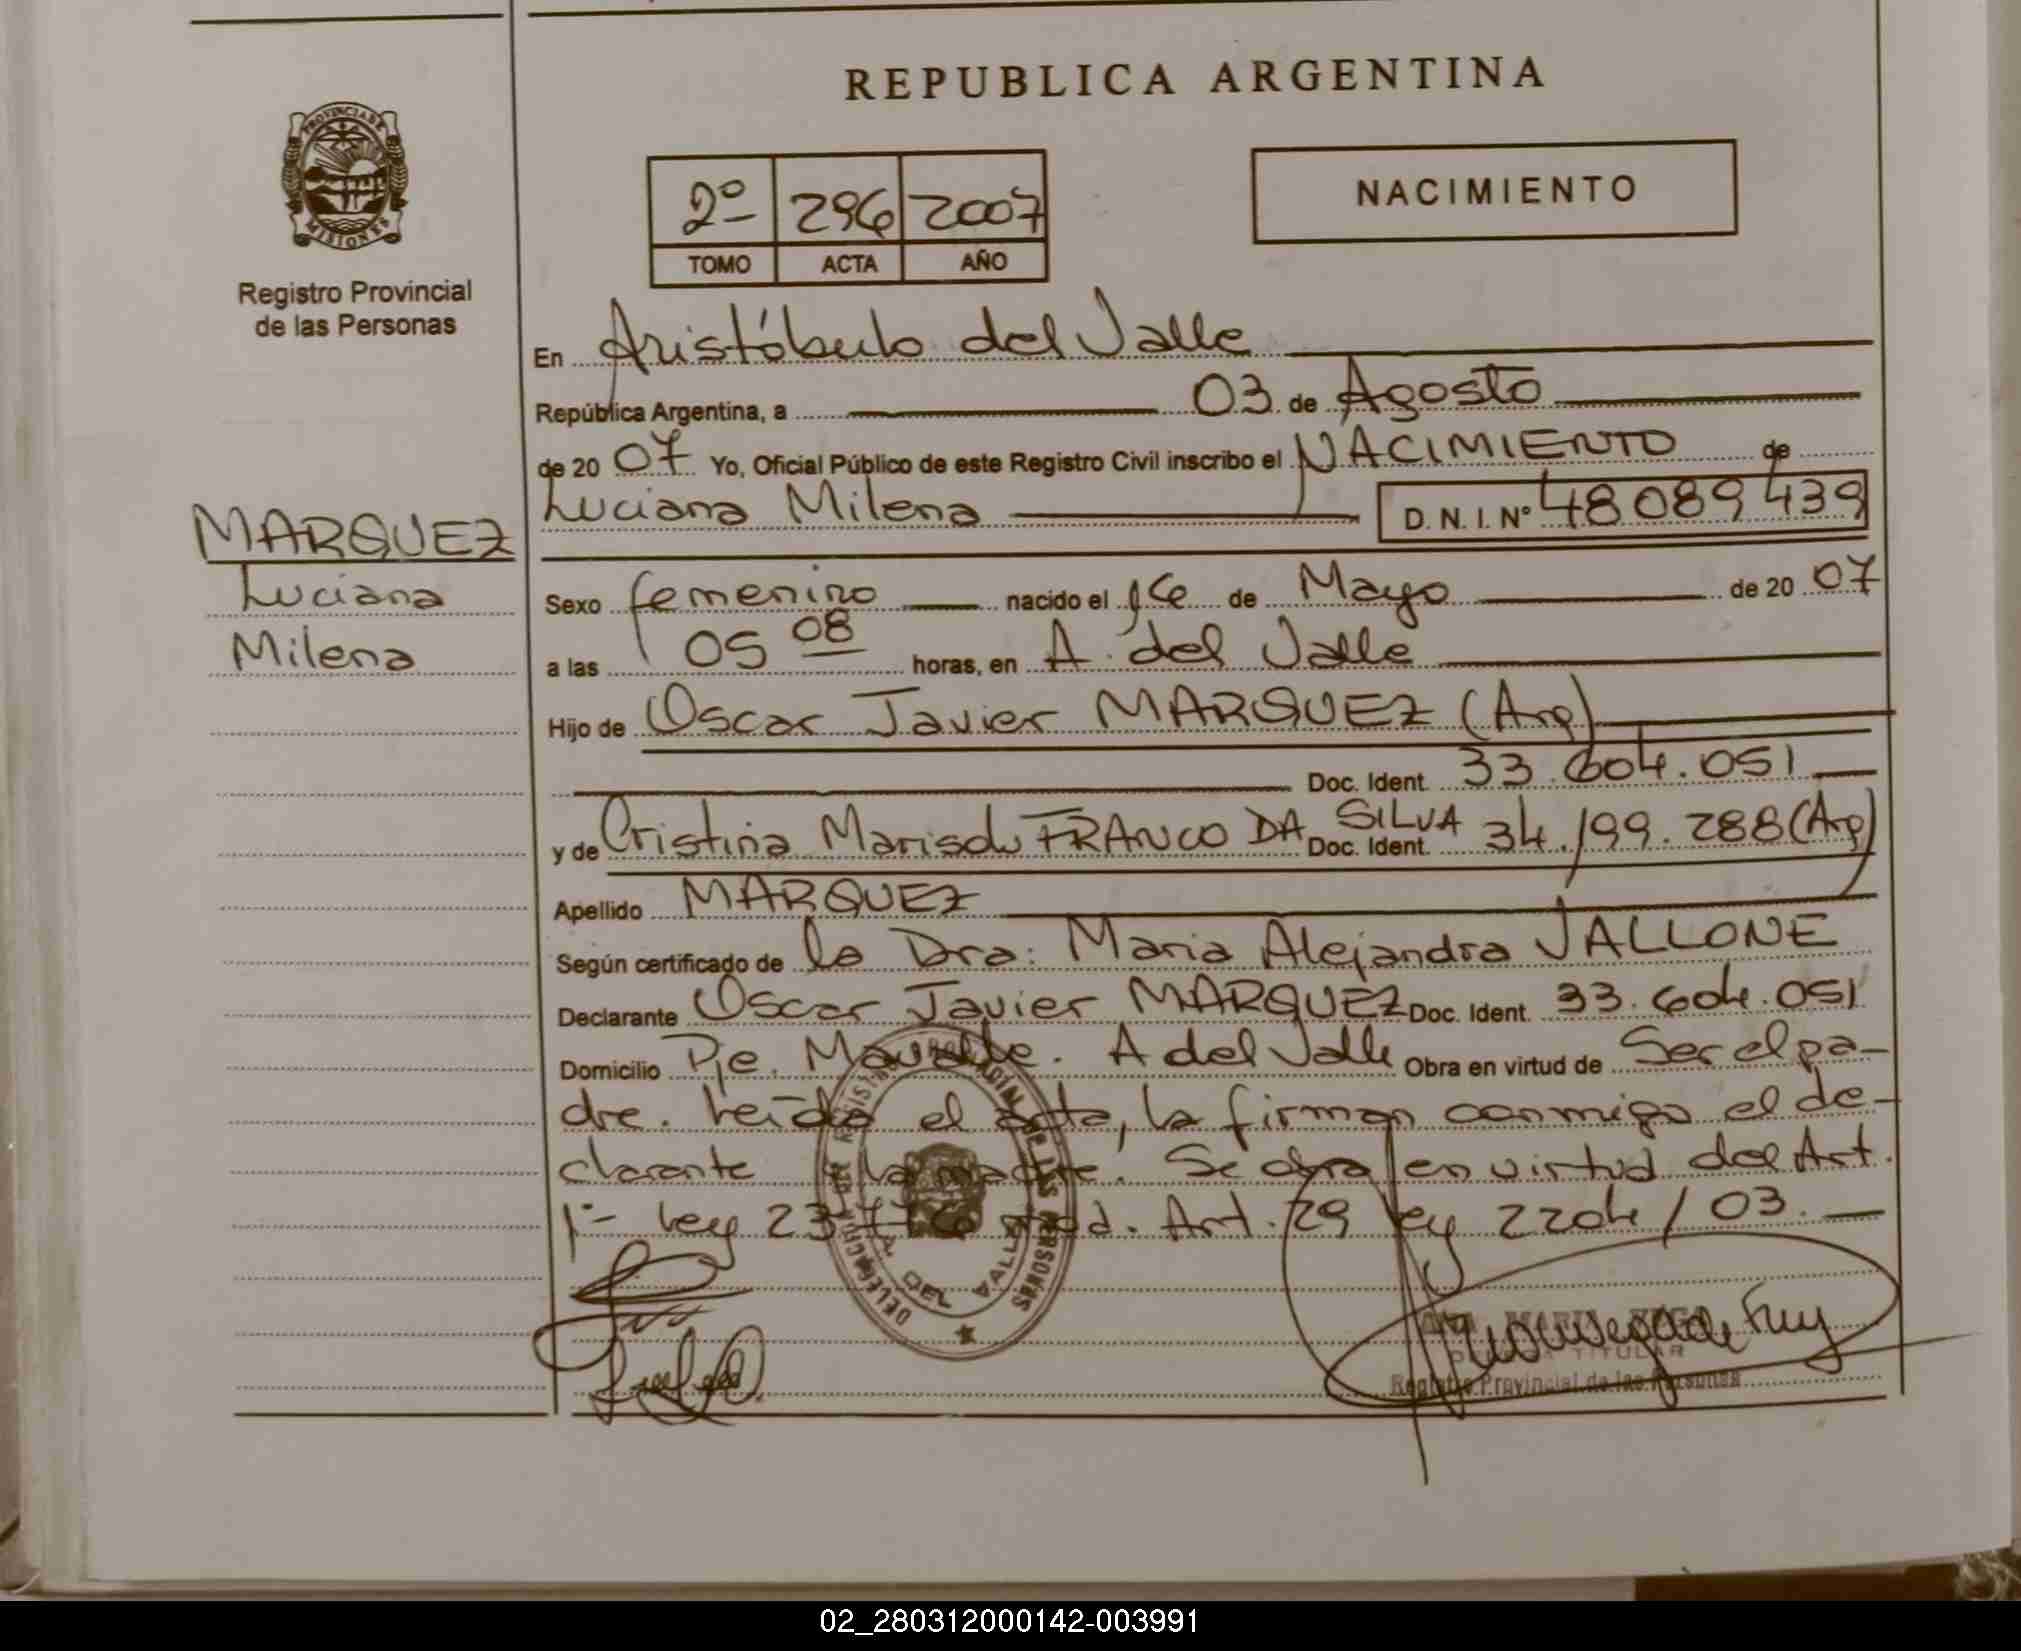 REPUBLICA ARGENTINA
PROVINCIA DE
MISIONES
Registro Provincial
de las Personas
2º 296 2007
TOMO ACTA AÑO
NACIMIENTO
En Aristóbulo del Valle
República Argentina, a 03 de Agosto
de 2007 Yo, Oficial Público de este Registro Civil inscribo el NACIMIENTO de
Luciana Milena D. N. I. Nº 48089439
MARQUEZ
Luciana
Milena
Sexo femenino nacido el 16 de Mayo de 2007
a las 05 08 horas, en A. del Valle
Hijo de Oscar Javier MARQUEZ (Arg)
Doc. Ident. 33.604.051
y de Cristina Marisol FRANCO DA SILVA Doc. Ident. 34.199.288 (Arg)
Apellido MARQUEZ
Según certificado de la Dra: Maria Alejandra VALLONE
Declarante Oscar Javier MARQUEZ Doc. Ident. 33.604.051
Domicilio Pje. A del Valle Obra en virtud de Ser el pa-
dre. Leída el acta, la firman conmigo el de-
clarante y la madre. Se obra en virtud del Art.
1º- Ley 23 mod. Art. 29 Ley 2204/03.
DEL VALLE
TITULAR
Registro Provincial de las Personas
02_280312000142-003991